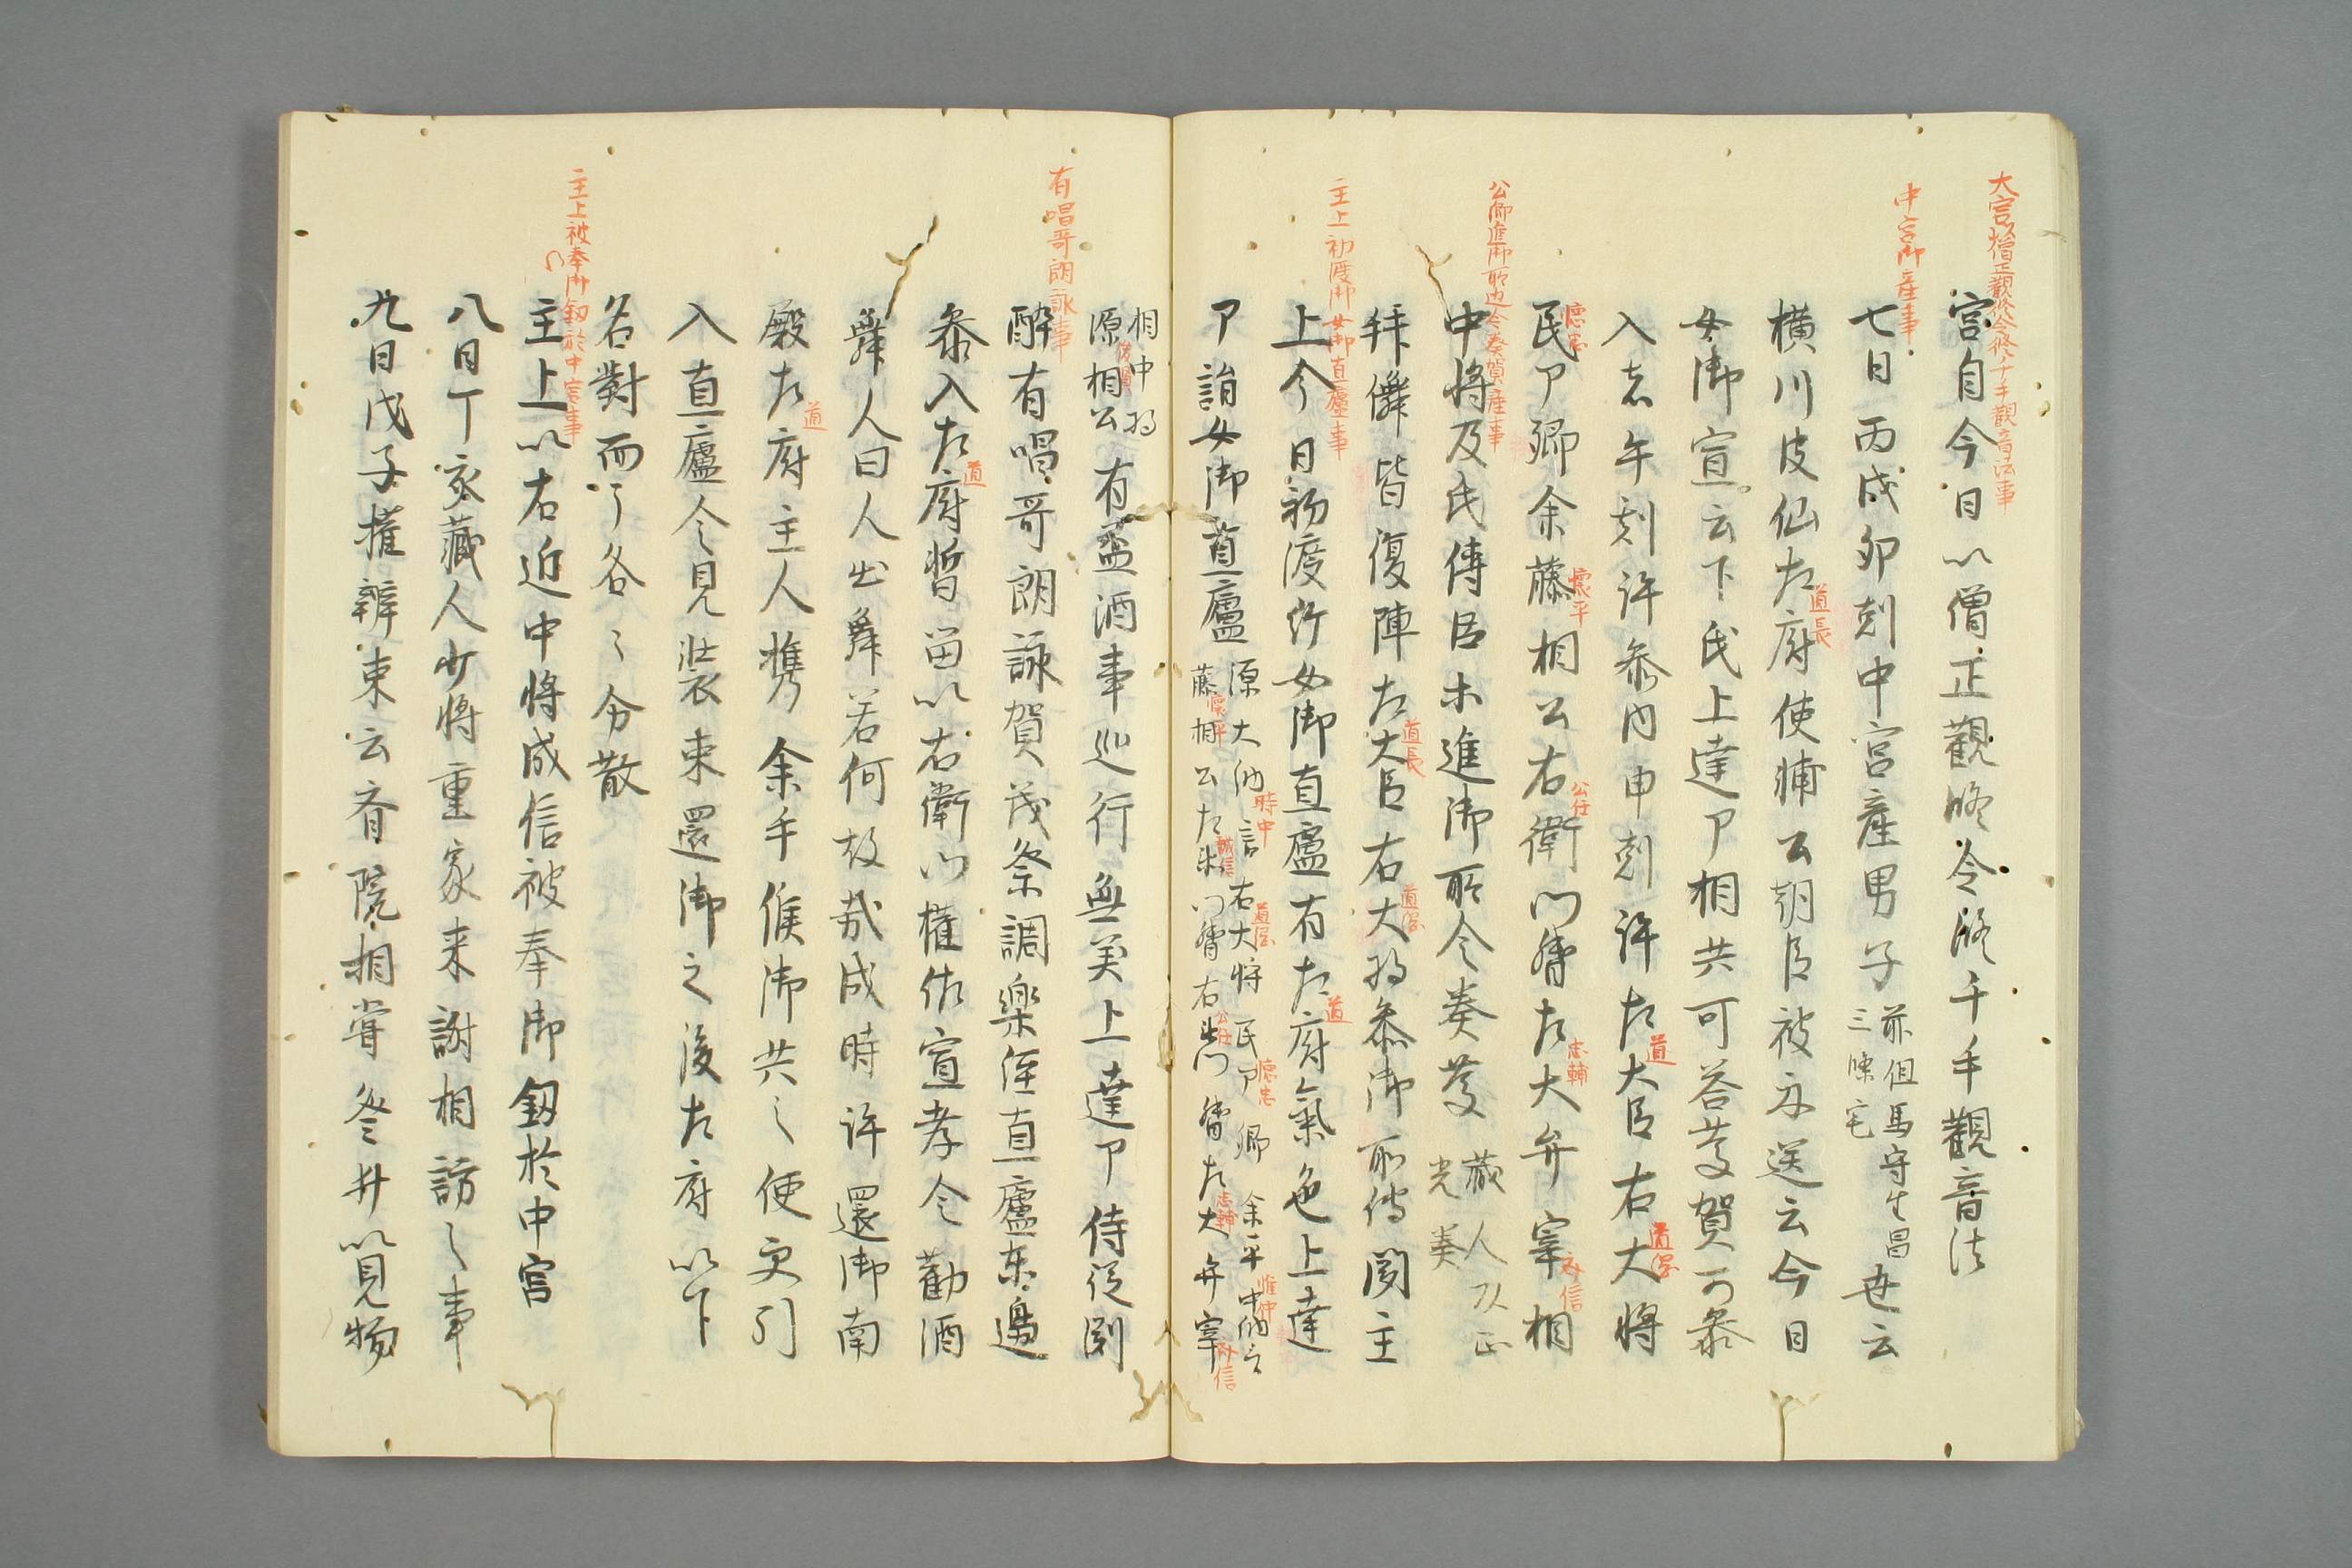 大宮以僧正觀修令修千手觀音法事
宮自今日以僧正觀修令修千手觀音法
中宮御産事
七日丙戌卯剋中宮産男子前但馬守生昌三條宅世云
横川皮仙左府道長使輔公朝臣被示送云今日
女御宣云下氏上達卩相共可答慶賀可參
入者午剋許參内申剋許左道大臣右道綱大將
民懐忠卩卿余藤懐平相公右公任衛門督左忠輔大弁宰斉信相
公卿進御所邊令奏賀産事
中將及氏傳臣木進御所令奏慶藏人以正光奏
拜儛皆復陣左道長大臣右道綱大將參御所傳聞主
主上初渡御女御直廬事
上今日初渡御女御直廬有左道府氣色上達
卩詣女御直廬源大納時中言右道綱大將民卩懐忠卿余平惟仲中納言
藤懐平相公左誠信朱門督右公任朱門督左忠輔大弁宰斉信
相中將
源俊賢相公有盃酒事巡行無美上達卩侍從剧
有唱哥朗詠事
酔有唱哥朗詠賀茂祭調樂侄直廬東邊
參入左道府暫留以右衛門權佐宣孝令勸酒
舞人曰人出舞若何故哉成時許還御南
殿左道府主人携余手候御共々便更引
入直廬令見装束還御之後左府以下
名對面了各々分散
主上被奉御釼於中宮事
主上以右近中將成信被奉御釼於中宮
八日丁亥藏人少將重家来謝相訪之事
九日戊子權辨束云斉院相嘗祭并以見物